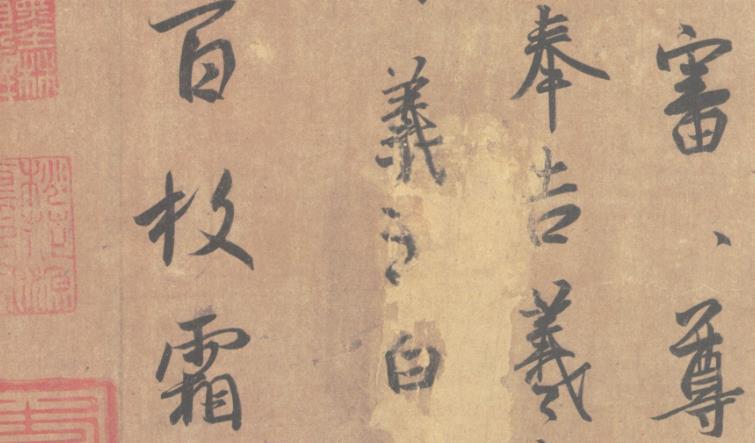 審、尊
奉告羲
羲之白
百枚霜